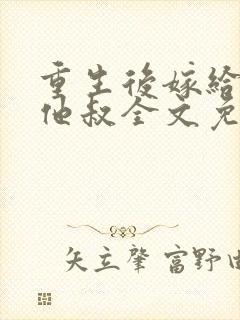 重生后嫁给
他叔全文免
矢立肇 富野由